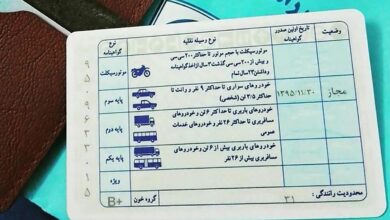 وضعیت
تاریخ اولین صدور گواهینامه
نوع وسیله نقلیه
نوع گواهینامه
مجاز
۱۳۹۵/۱۱/۳۰
موتورسیکلت با حجم موتور تا حداکثر ۲۰۰ سی سی
و بیش از ۲۰۰ سی سی گذشت ۳ سال از اخذ گواهینامه
و داشتن ۲۳ سال تمام
موتورسیکلت
خودروهای سواری تا حداکثر ۹ نفر و وانت تا
حداکثر ۳/۵ تن (شخصی)
پایه سوم
خودروهای باربری تا حداکثر ۶ تن و خودروهای
مسافربری تا حداکثر ۲۶ نفر و خودروهای خدمات
عمومی
پایه دوم
خودروهای باربری بیش از ۶ تن و خودروهای
مسافربری بیش از ۲۶ نفر
پایه یکم
ویژه
محدودیت رانندگی :
۳۱
گروه خون
B+